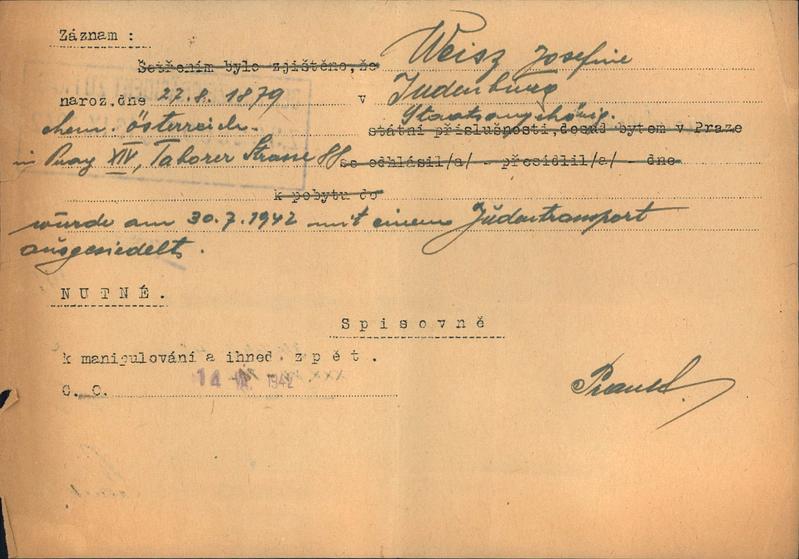 Záznam :
Šetřením bylo zjištěno, že Weisz Josefine
naroz. dne 27.8.1879 v Judenburg
Staatsangehörig.
ehem. Österreich. státní příslušnosti, dosud bytem v Praze
in Prag XIV, Taborer Strasse se odhlásil/a/ - přesídlil/a/ - dne
k pobytu do
wurde am 30.7.1942 mit einem Judentransport
ausgesiedelt.
NUTNÉ.
Spisovně
k manipulování a ihned zpět.
O. O. 14 1942